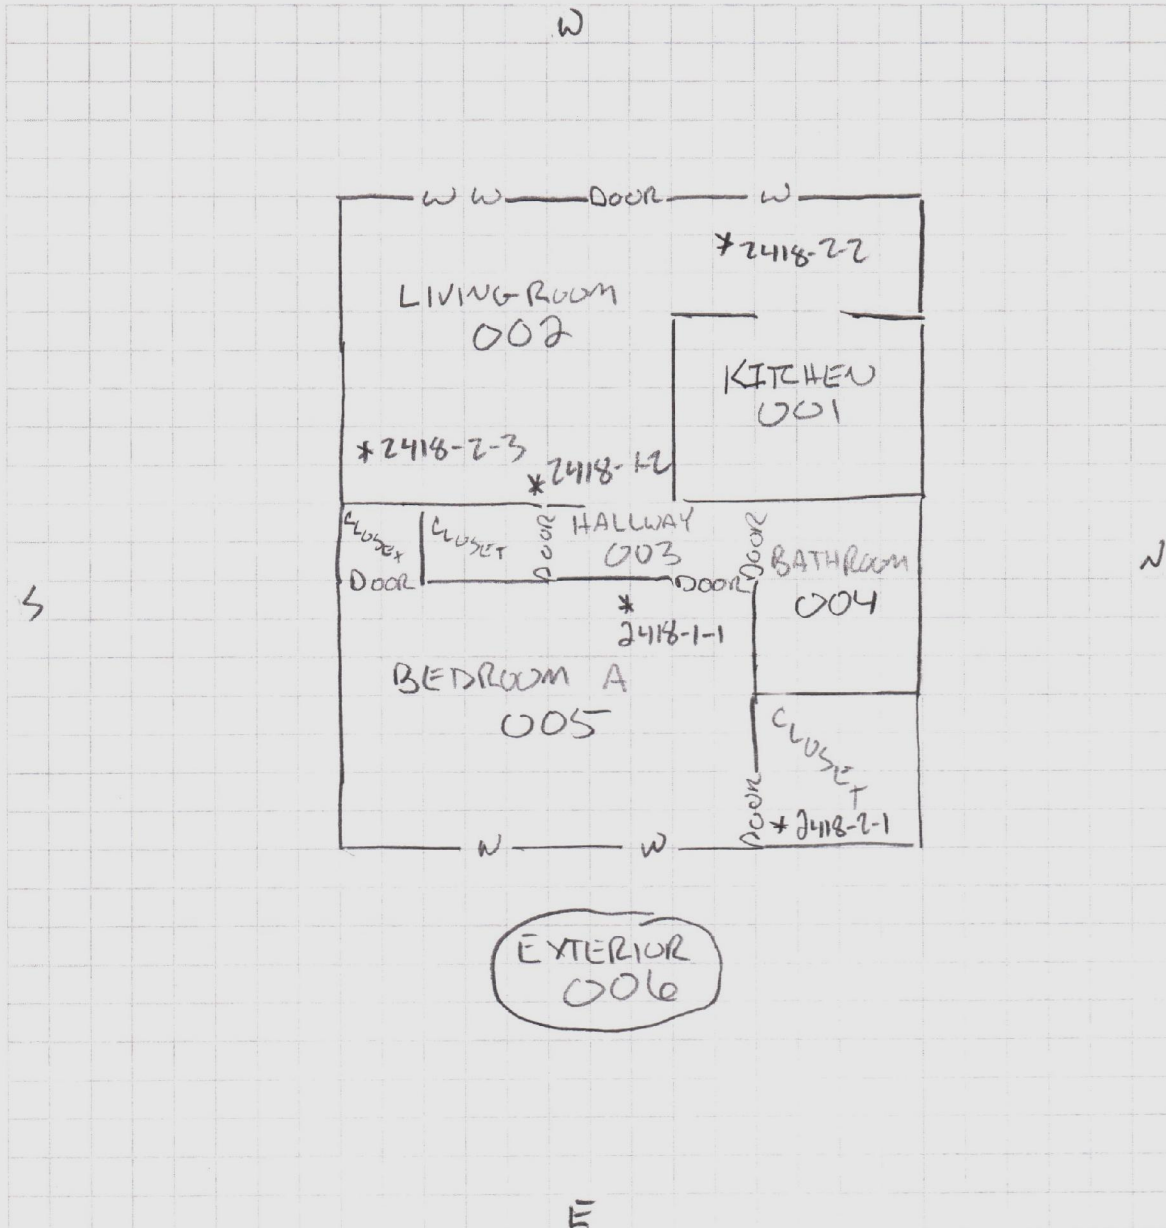 W
W W DOOR W
*2418-2-2
LIVING ROOM
002
KITCHEN
001
*2418-2-3
*2418-1-2
CLOSET
CLOSET
DOOR
HALLWAY
003
DOOR
BATHROOM
004
N
S
DOOR
DOOR
*
2418-1-1
BEDROOM A
005
CLOSET
DOOR
*2418-2-1
W W
EXTERIOR
006
E